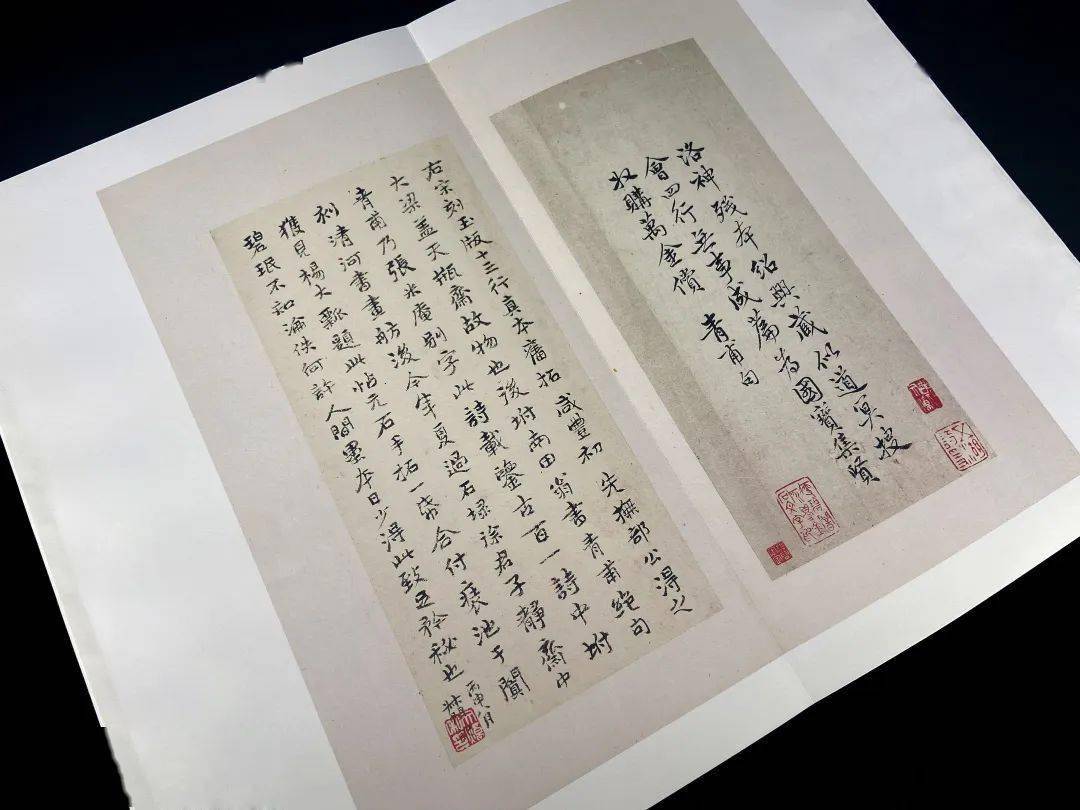 洛神殘本紹興藏似道冥搜
會四行無事成篇為國寶集賢
収購萬金償 青甫句
右宋刻玉版十三行真本舊拓咸豐初先撫部公得之
大梁蓋天瓶齋故物也後坿雨田翁書青甫絕句
青甫乃張米庵別字此詩載鑒古百一詩中坿
刻清河書畫舫後今年夏過石埭徐君子靜齋中
獲見楊大瓢題此帖元石手拓一帋合付裝池于閩
碧珉不知淪佚何許人間墨本日少得此致足矜秘也
丙申 月